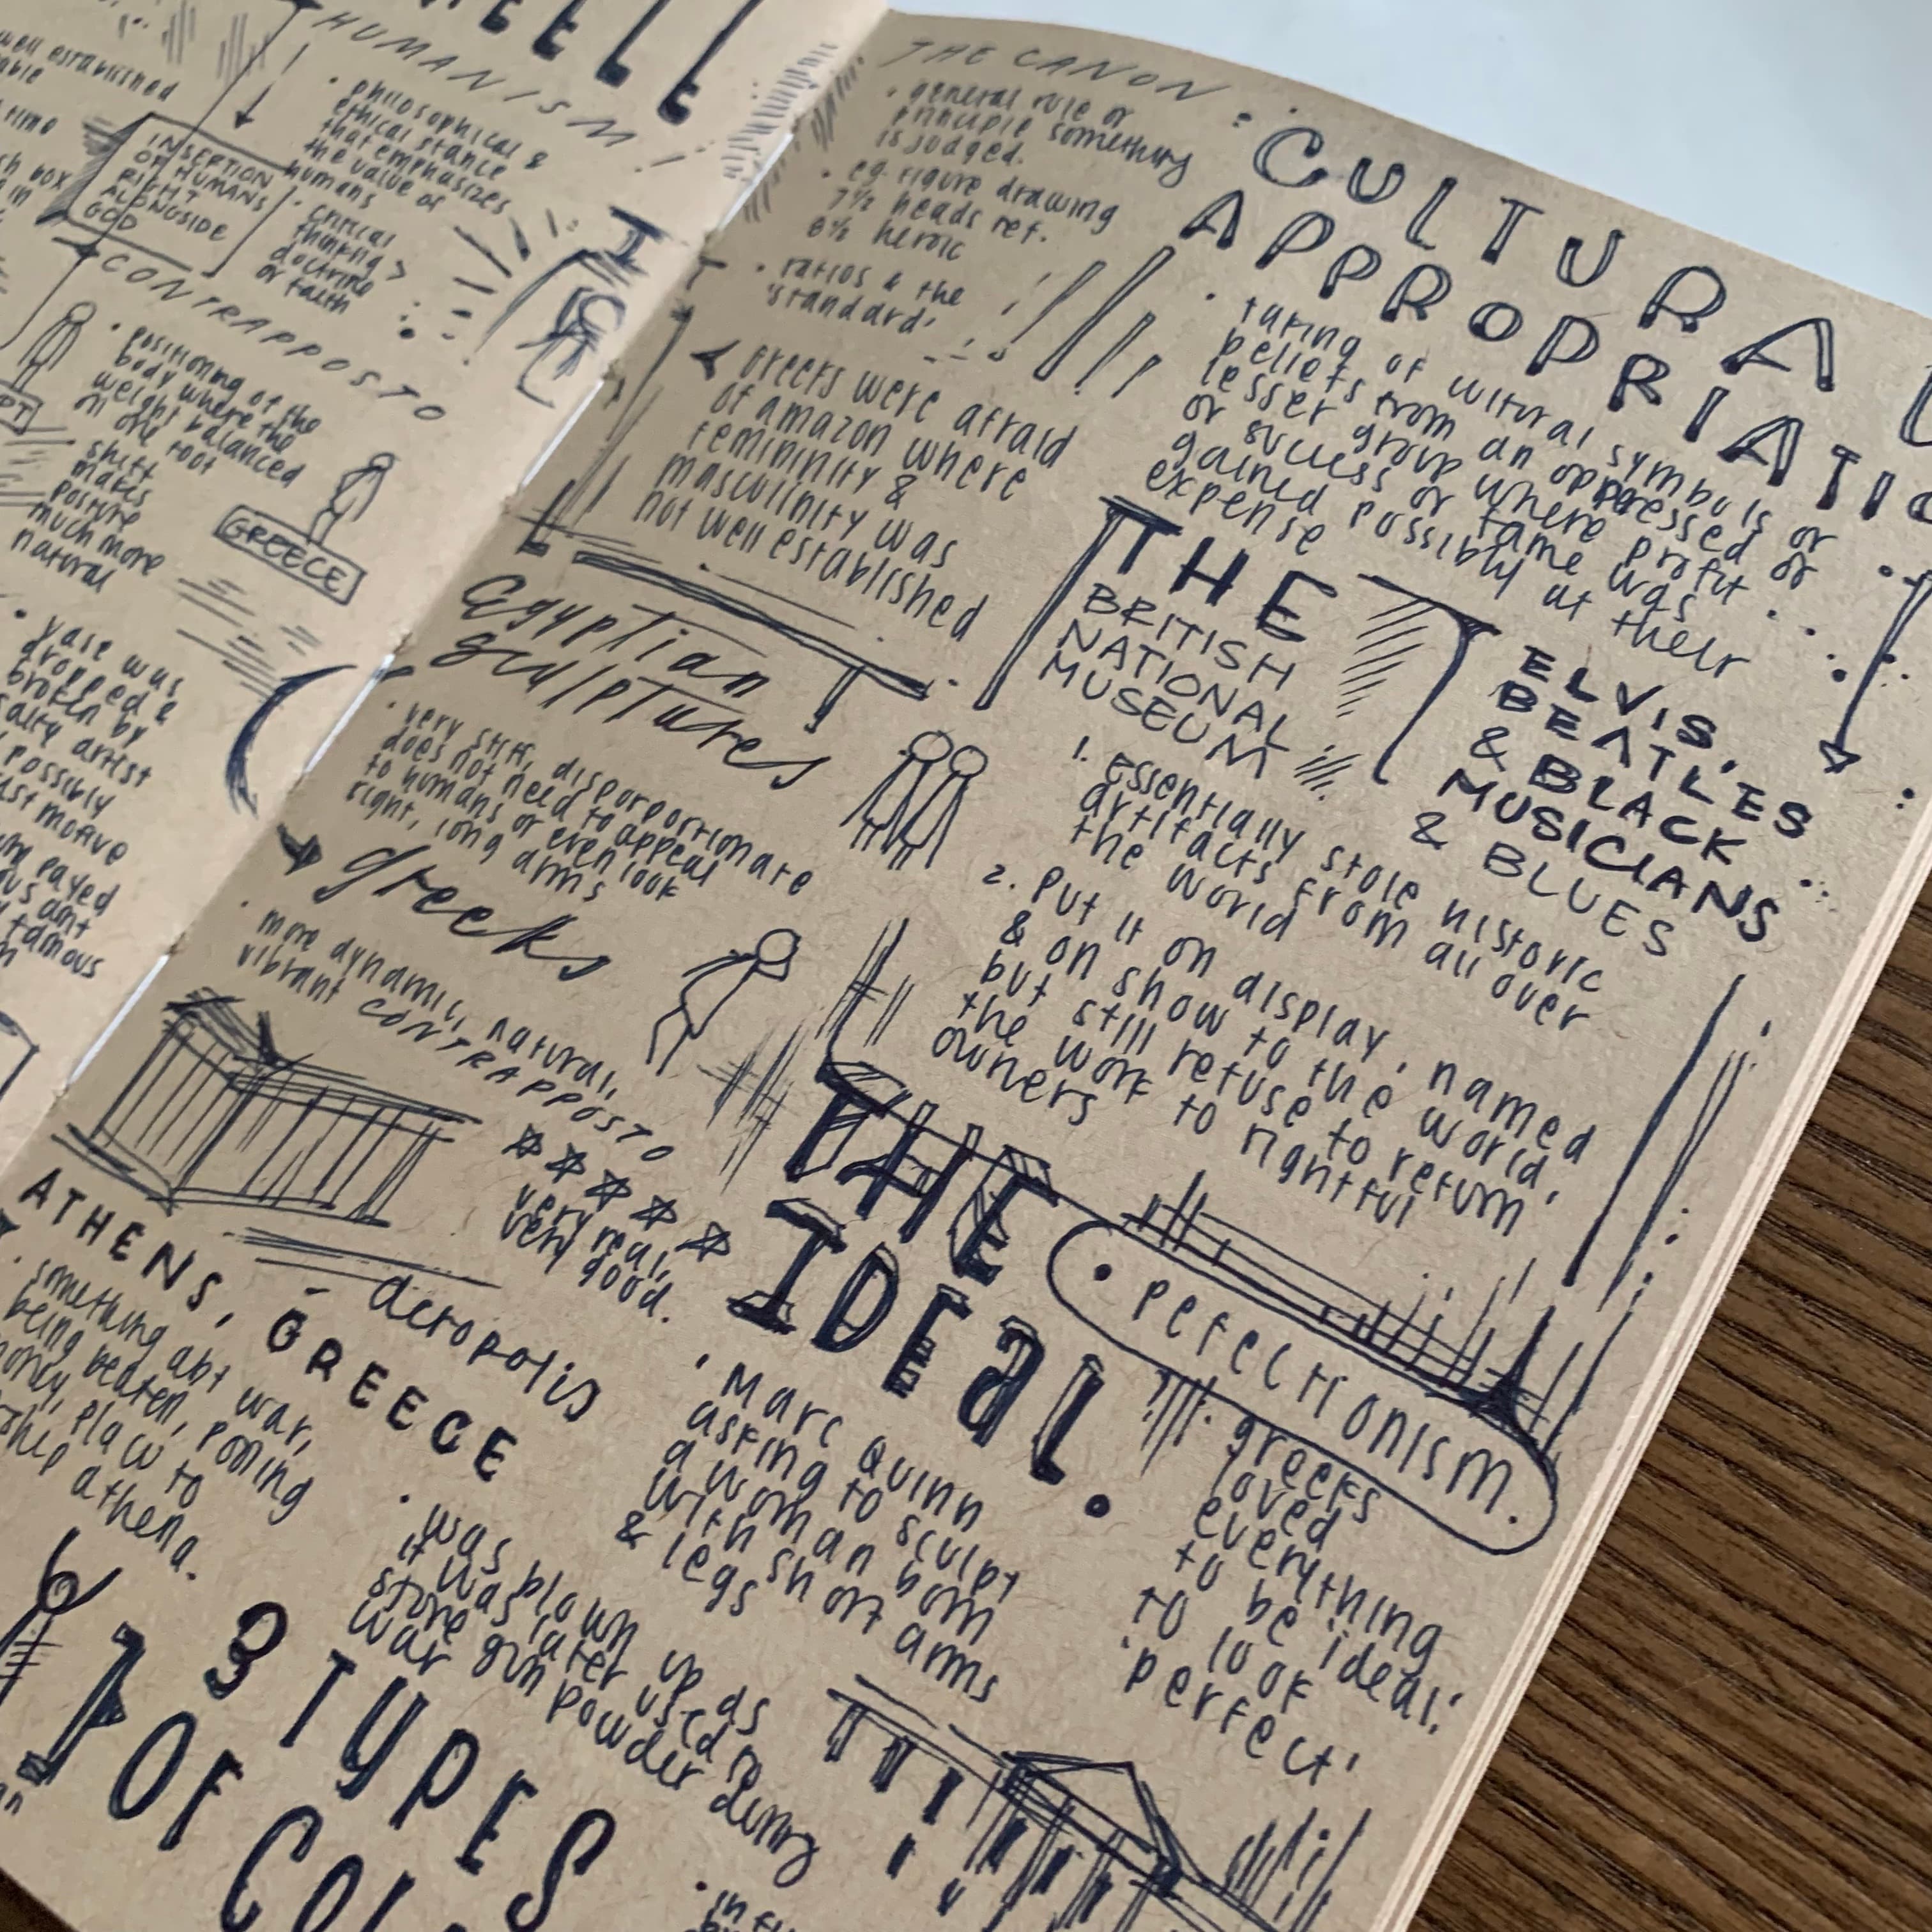 HUMANISM
well established
able
time
INSERTION
OF HUMANS
RIGHT
ALONGSIDE
GOD
• philosophical &
ethical stance
that emphasizes
the value of
humans
• critical
thinking >
doctrine
or faith
CONTRAPPOSTO
• positioning of the
body where the
weight balanced
on one foot
• shift
makes
posture
much more
natural
GREECE
• vase was
dropped &
broken by
salty artist
possibly
motive
payed
amt
famous
THE CANON:
• general rule or
principle something
is judged.
• eg. figure drawing
7½ heads ref.
8½ heroic
• ratios & the
'standard'
greeks were afraid
of amazon where
femininity &
masculinity was
not well established
Egyptian
sculptures
• very stiff, disporportionate
does not need to appeal
to humans or even look
right, long arms
greeks
• more dynamic, natural,
vibrant CONTRAPPOSTO
very real,
very good.
ATHENS, GREECE
– acropolis
• something abt war,
being beaten, pooling
money, place to
athena.
• was blown up as
it was later used to
store gun powder during
war
3 TYPES
OF
COL
CULTURAL
APPROPRIATIO
• taking of cultural symbols or
beliefs from an oppressed or
lesser group where profit
or success or fame was
gained possibly at their
expense
THE
BRITISH
NATIONAL
MUSEUM
ELVIS,
BEATLES
& BLACK
MUSICIANS
& BLUES
1. essentially stole historic
artifacts from all over
the world
2. put it on display, named
& on show to the world,
but still refuse to return
the work to rightful
owners
THE
IDEAL.
• perfectionism.
• Marc Quinn
asking to sculpt
a woman born
with short arms
& legs
• greeks
loved
everything
to be ideal.
to look
'perfect'